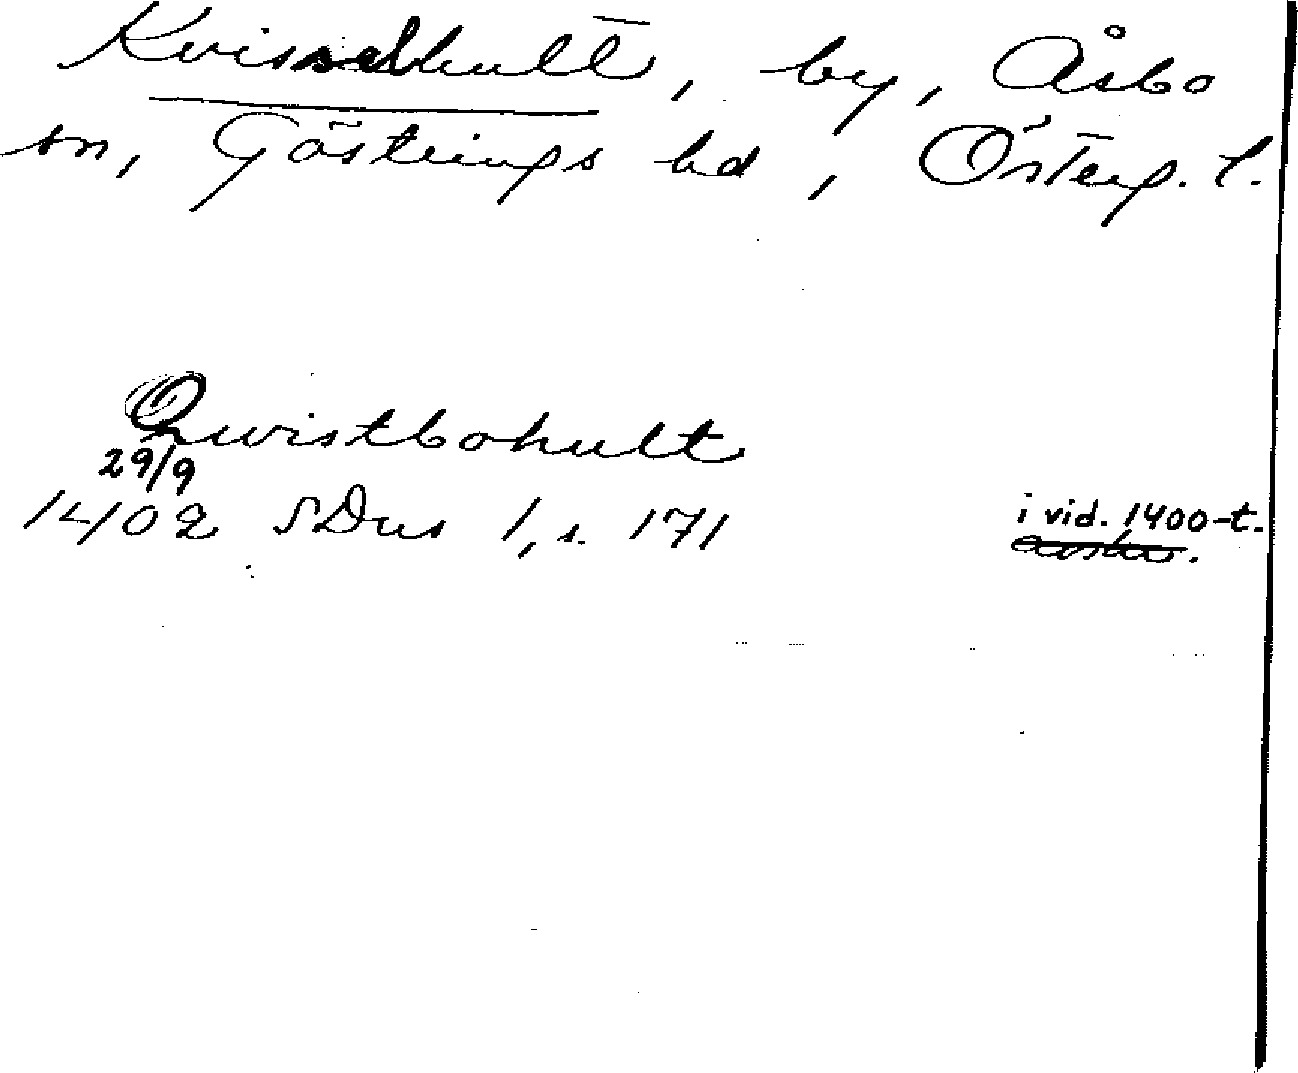 Kvisselhult, by, Åsbo
sn, Göstrings hd, Österg. l.
Qwistbohult
29/9
1402 SDns 1, s. 171
i vid. 1400-t.